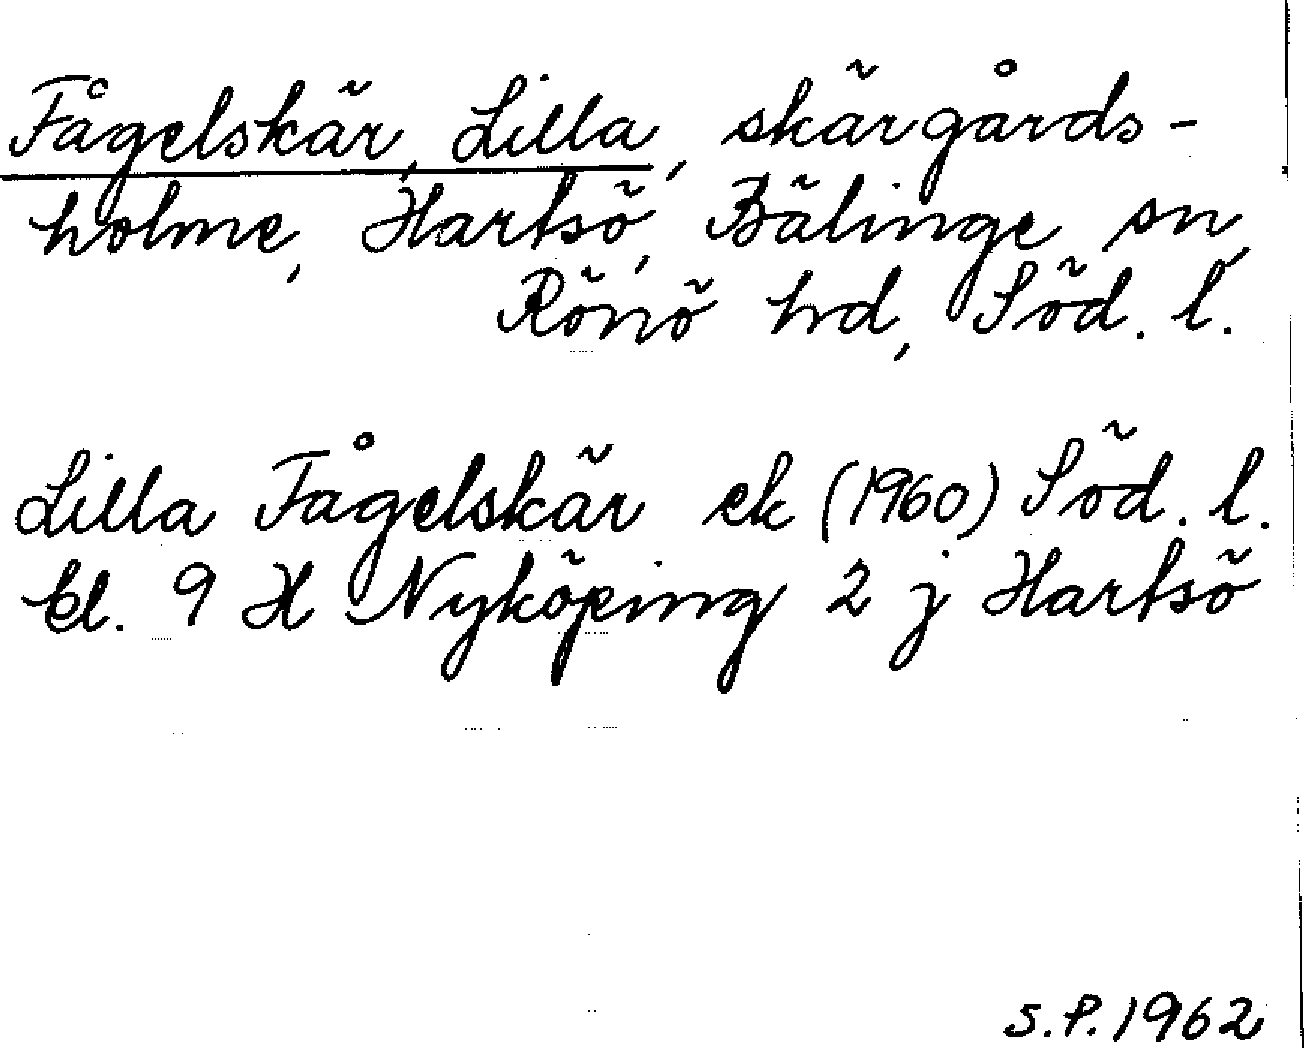 Fågelskär, Lilla, skärgårds-
holme, Hartsö, Bälinge sn,
Rönö hd, Söd. l.
Lilla Fågelskär ek (1960) Söd. l.
bl. 9 H Nyköping 2 j Hartsö
S.P. 1962